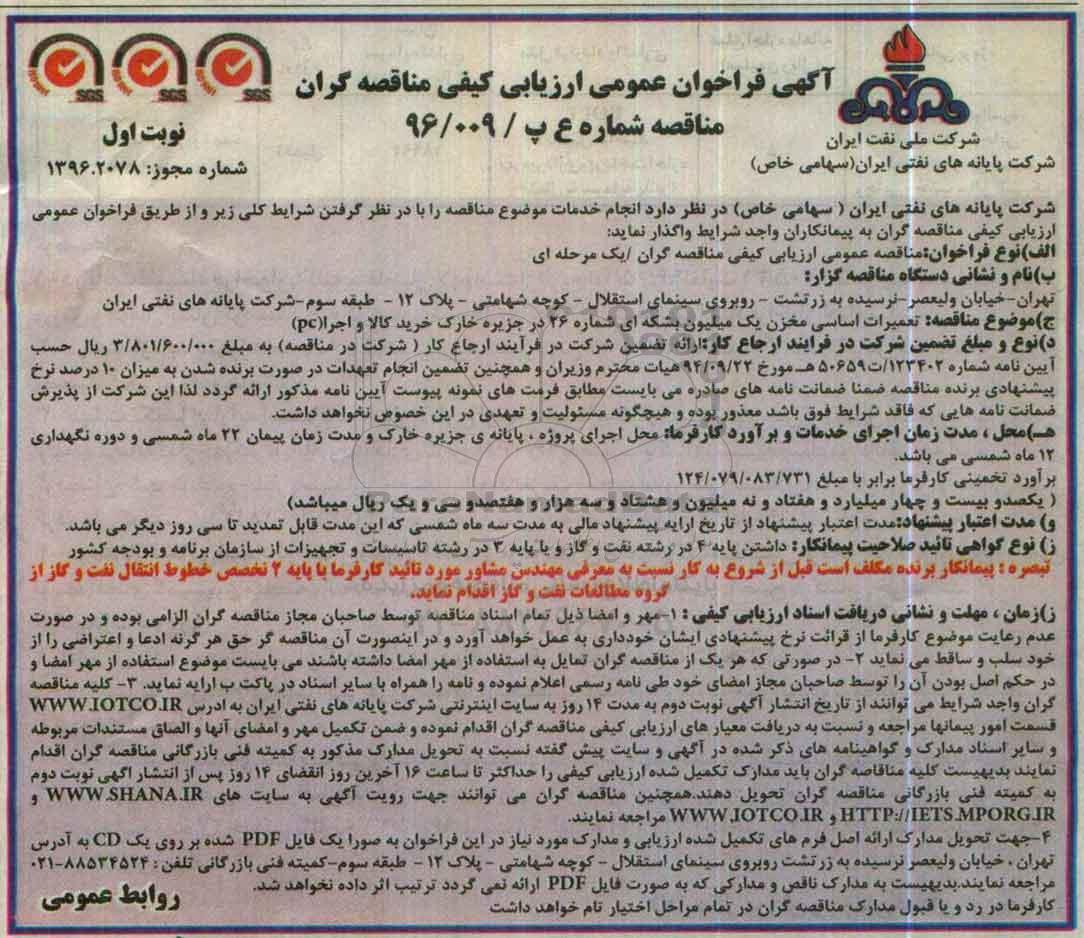 آگهی فراخوان عمومی ارزیابی کیفی مناقصه گران
مناقصه شماره ع پ / ۹۶/۰۰۹
SGS SGS SGS
نوبت اول
شماره مجوز: ۱۳۹۶.۲۰۷۸
شرکت ملی نفت ایران
شرکت پایانه های نفتی ایران(سهامی خاص)
شرکت پایانه های نفتی ایران ( سهامی خاص) در نظر دارد انجام خدمات موضوع مناقصه را با در نظر گرفتن شرایط کلی زیر و از طریق فراخوان عمومی
ارزیابی کیفی مناقصه گران به پیمانکاران واجد شرایط واگذار نماید:
الف)نوع فراخوان:مناقصه عمومی ارزیابی کیفی مناقصه گران /یک مرحله ای
ب)نام و نشانی دستگاه مناقصه گزار:
تهران-خیابان ولیعصر-نرسیده به زرتشت - روبروی سینمای استقلال - کوچه شهامتی - پلاک ۱۲ - طبقه سوم-شرکت پایانه های نفتی ایران
ج)موضوع مناقصه: تعمیرات اساسی مخزن یک میلیون بشکه ای شماره ۲۶ در جزیره خارک خرید کالا و اجرا(pc)
د)نوع و مبلغ تضمین شرکت در فرایند ارجاع کار:ارائه تضمین شرکت در فرآیند ارجاع کار ( شرکت در مناقصه) به مبلغ ۳/۸۰۱/۶۰۰/۰۰۰ ریال حسب
آیین نامه شماره ۱۲۳۴۰۲/ت۵۰۶۵۹ هـ مورخ ۹۴/۰۹/۲۲ هیات محترم وزیران و همچنین تضمین انجام تعهدات در صورت برنده شدن به میزان ۱۰ درصد نرخ
پیشنهادی برنده مناقصه ضمنا ضمانت نامه های صادره می بایست مطابق فرمت های نمونه پیوست آیین نامه مذکور ارائه گردد لذا این شرکت از پذیرش
ضمانت نامه هایی که فاقد شرایط فوق باشد معذور بوده و هیچگونه مسئولیت و تعهدی در این خصوص نخواهد داشت.
هـ)محل ، مدت زمان اجرای خدمات و برآورد کارفرما: محل اجرای پروژه ، پایانه ی جزیره خارک و مدت زمان پیمان ۲۲ ماه شمسی و دوره نگهداری
۱۲ ماه شمسی می باشد.
برآورد تخمینی کارفرما برابر با مبلغ ۱۲۴/۰۷۹/۰۸۳/۷۳۱
( یکصدو بیست و چهار میلیارد و هفتاد و نه میلیون و هشتاد و سه هزار و هفتصدو سی و یک ریال میباشد)
و) مدت اعتبار پیشنهاد:مدت اعتبار پیشنهاد از تاریخ ارایه پیشنهاد مالی به مدت سه ماه شمسی که این مدت قابل تمدید تا سی روز دیگر می باشد.
ز) نوع گواهی تائید صلاحیت پیمانکار: داشتن پایه ۴ در رشته نفت و گاز و یا پایه ۳ در رشته تاسیسات و تجهیزات از سازمان برنامه و بودجه کشور
تبصره : پیمانکار برنده مکلف است قبل از شروع به کار نسبت به معرفی مهندس مشاور مورد تائید کارفرما با پایه ۲ تخصص خطوط انتقال نفت و گاز از
گروه مطالعات نفت و گاز اقدام نماید.
ز)زمان ، مهلت و نشانی دریافت اسناد ارزیابی کیفی : ۱-مهر و امضا ذیل تمام اسناد مناقصه توسط صاحبان مجاز مناقصه گران الزامی بوده و در صورت
عدم رعایت موضوع کارفرما از قرائت نرخ پیشنهادی ایشان خودداری به عمل خواهد آورد و در اینصورت آن مناقصه گر حق هر گرنه ادعا و اعتراضی را از
خود سلب و ساقط می نماید ۲- در صورتی که هر یک از مناقصه گران تمایل به استفاده از مهر امضا داشته باشند می بایست موضوع استفاده از مهر امضا و
در حکم اصل بودن آن را توسط صاحبان مجاز امضای خود طی نامه رسمی اعلام نموده و نامه را همراه با سایر اسناد در پاکت ب ارایه نماید. ۳- کلیه مناقصه
گران واجد شرایط می توانند از تاریخ انتشار آگهی نوبت دوم به مدت ۱۴ روز به سایت اینترنتی شرکت پایانه های نفتی ایران به ادرس WWW.IOTCO.IR
قسمت امور پیمانها مراجعه و نسبت به دریافت معیار های ارزیابی کیفی مناقصه گران اقدام نموده و ضمن تکمیل مهر و امضای آنها و الصاق مستندات مربوطه
و سایر اسناد مدارک و گواهینامه های ذکر شده در آگهی و سایت پیش گفته نسبت به تحویل مدارک مذکور به کمیته فنی بازرگانی مناقصه گران اقدام
نمایند بدیهیست کلیه مناقاصه گران باید مدارک تکمیل شده ارزیابی کیفی را حداکثر تا ساعت ۱۶ آخرین روز انقضای ۱۴ روز پس از انتشار اگهی نوبت دوم
به کمیته فنی بازرگانی مناقصه گران تحویل دهند.همچنین مناقصه گران می توانند جهت رویت آگهی به سایت های WWW.SHANA.IR و
HTTP://IETS.MPORG.IR و WWW.IOTCO.IR مراجعه نمایند.
۴-جهت تحویل مدارک ارائه اصل فرم های تکمیل شده ارزیابی و مدارک مورد نیاز در این فراخوان به صورا یک فایل PDF شده بر روی یک CD به آدرس
تهران ، خیابان ولیعصر نرسیده به زرتشت روبروی سینمای استقلال - کوچه شهامتی - پلاک ۱۲ - طبقه سوم-کمیته فنی بازرگانی تلفن : ۸۸۵۳۴۵۲۴-۰۲۱
مراجعه نمایند.بدیهیست به مدارک ناقص و مدارکی که به صورت فایل PDF ارائه نمی گردد ترتیب اثر داده نخواهد شد.
کارفرما در رد و یا قبول مدارک مناقصه گران در تمام مراحل اختیار تام خواهد داشت
روابط عمومی